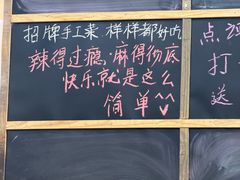 招牌手工菜 样样都好吃
辣得过瘾·麻得彻底
快乐就是这么
简单
点
打
送